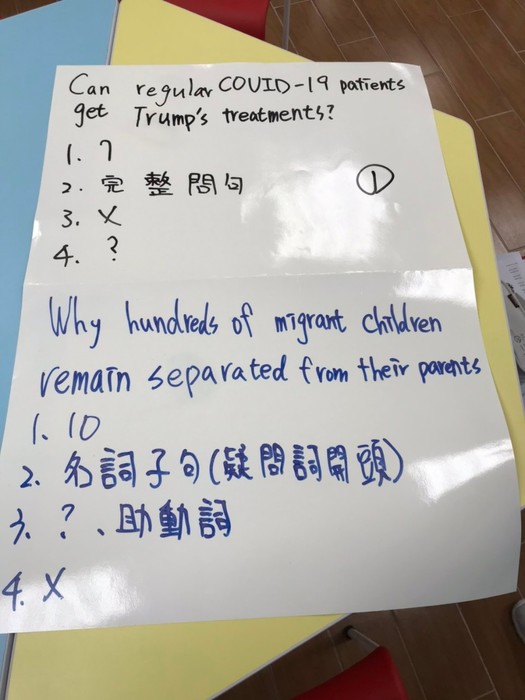 Can regular COVID-19 patients
get Trump's treatments?
1. 7
2. 完整問句
①
3. X
4. ?
Why hundreds of migrant children
remain separated from their parents
1. 10
2. 名詞子句(疑問詞開頭)
3. ?、助動詞
4. X